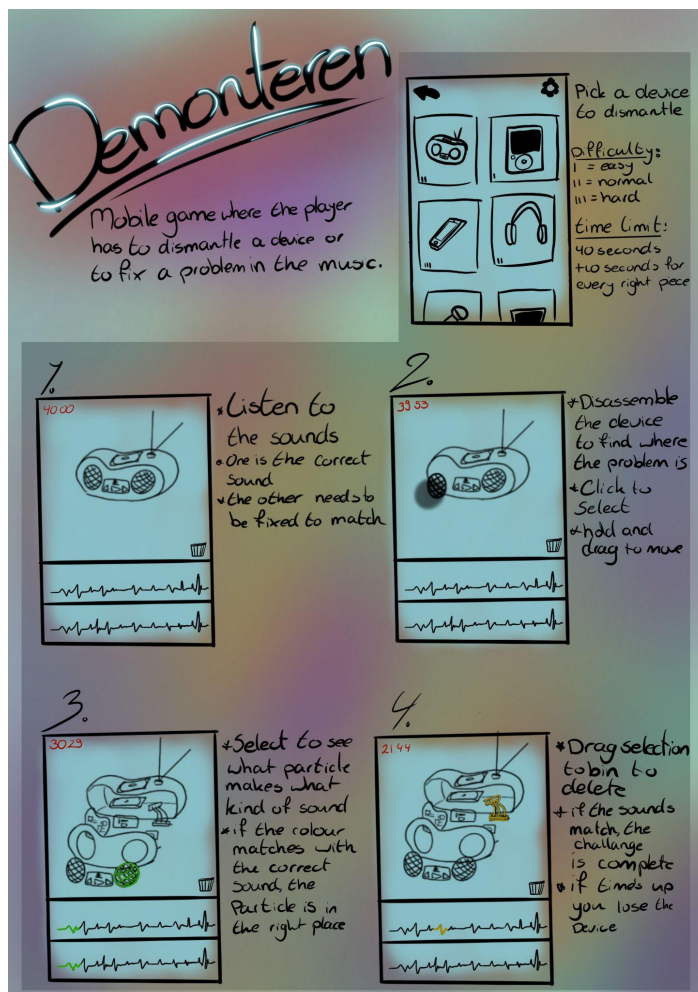 Demonteren
Mobile game where the player
has to dismantle a device or
to fix a problem in the music.
Pick a device
to dismantle
Difficulty:
I = easy
II = normal
III = hard
time limit:
40 seconds
+10 seconds for
every right piece
1.
40 00
* Listen to
the sounds
* One is the correct
sound
* the other needs to
be fixed to match
2.
39 53
* Disassemble
the device
to find where
the problem is
* Click to
Select
* hold and
drag to move
3.
30 29
* Select to see
what particle
makes what
kind of sound
* if the colour
matches with
the correct
sound, the
Particle is in
the right place
4.
21.44
* Drag selection
to bin to
delete
* if the sounds
match, the
challange
is complete
* if time's up
you lose the
Device